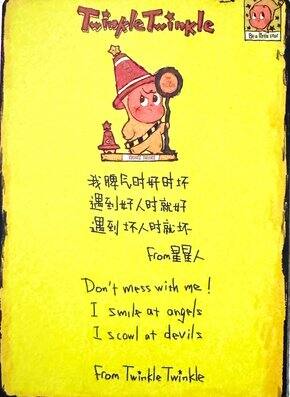 Twinkle Twinkle
我脾气时好时坏
遇到好人时就好
遇到坏人时就坏
From星星人
Don't mess with me!
I smile at angels
I scowl at devils
From Twinkle Twinkle